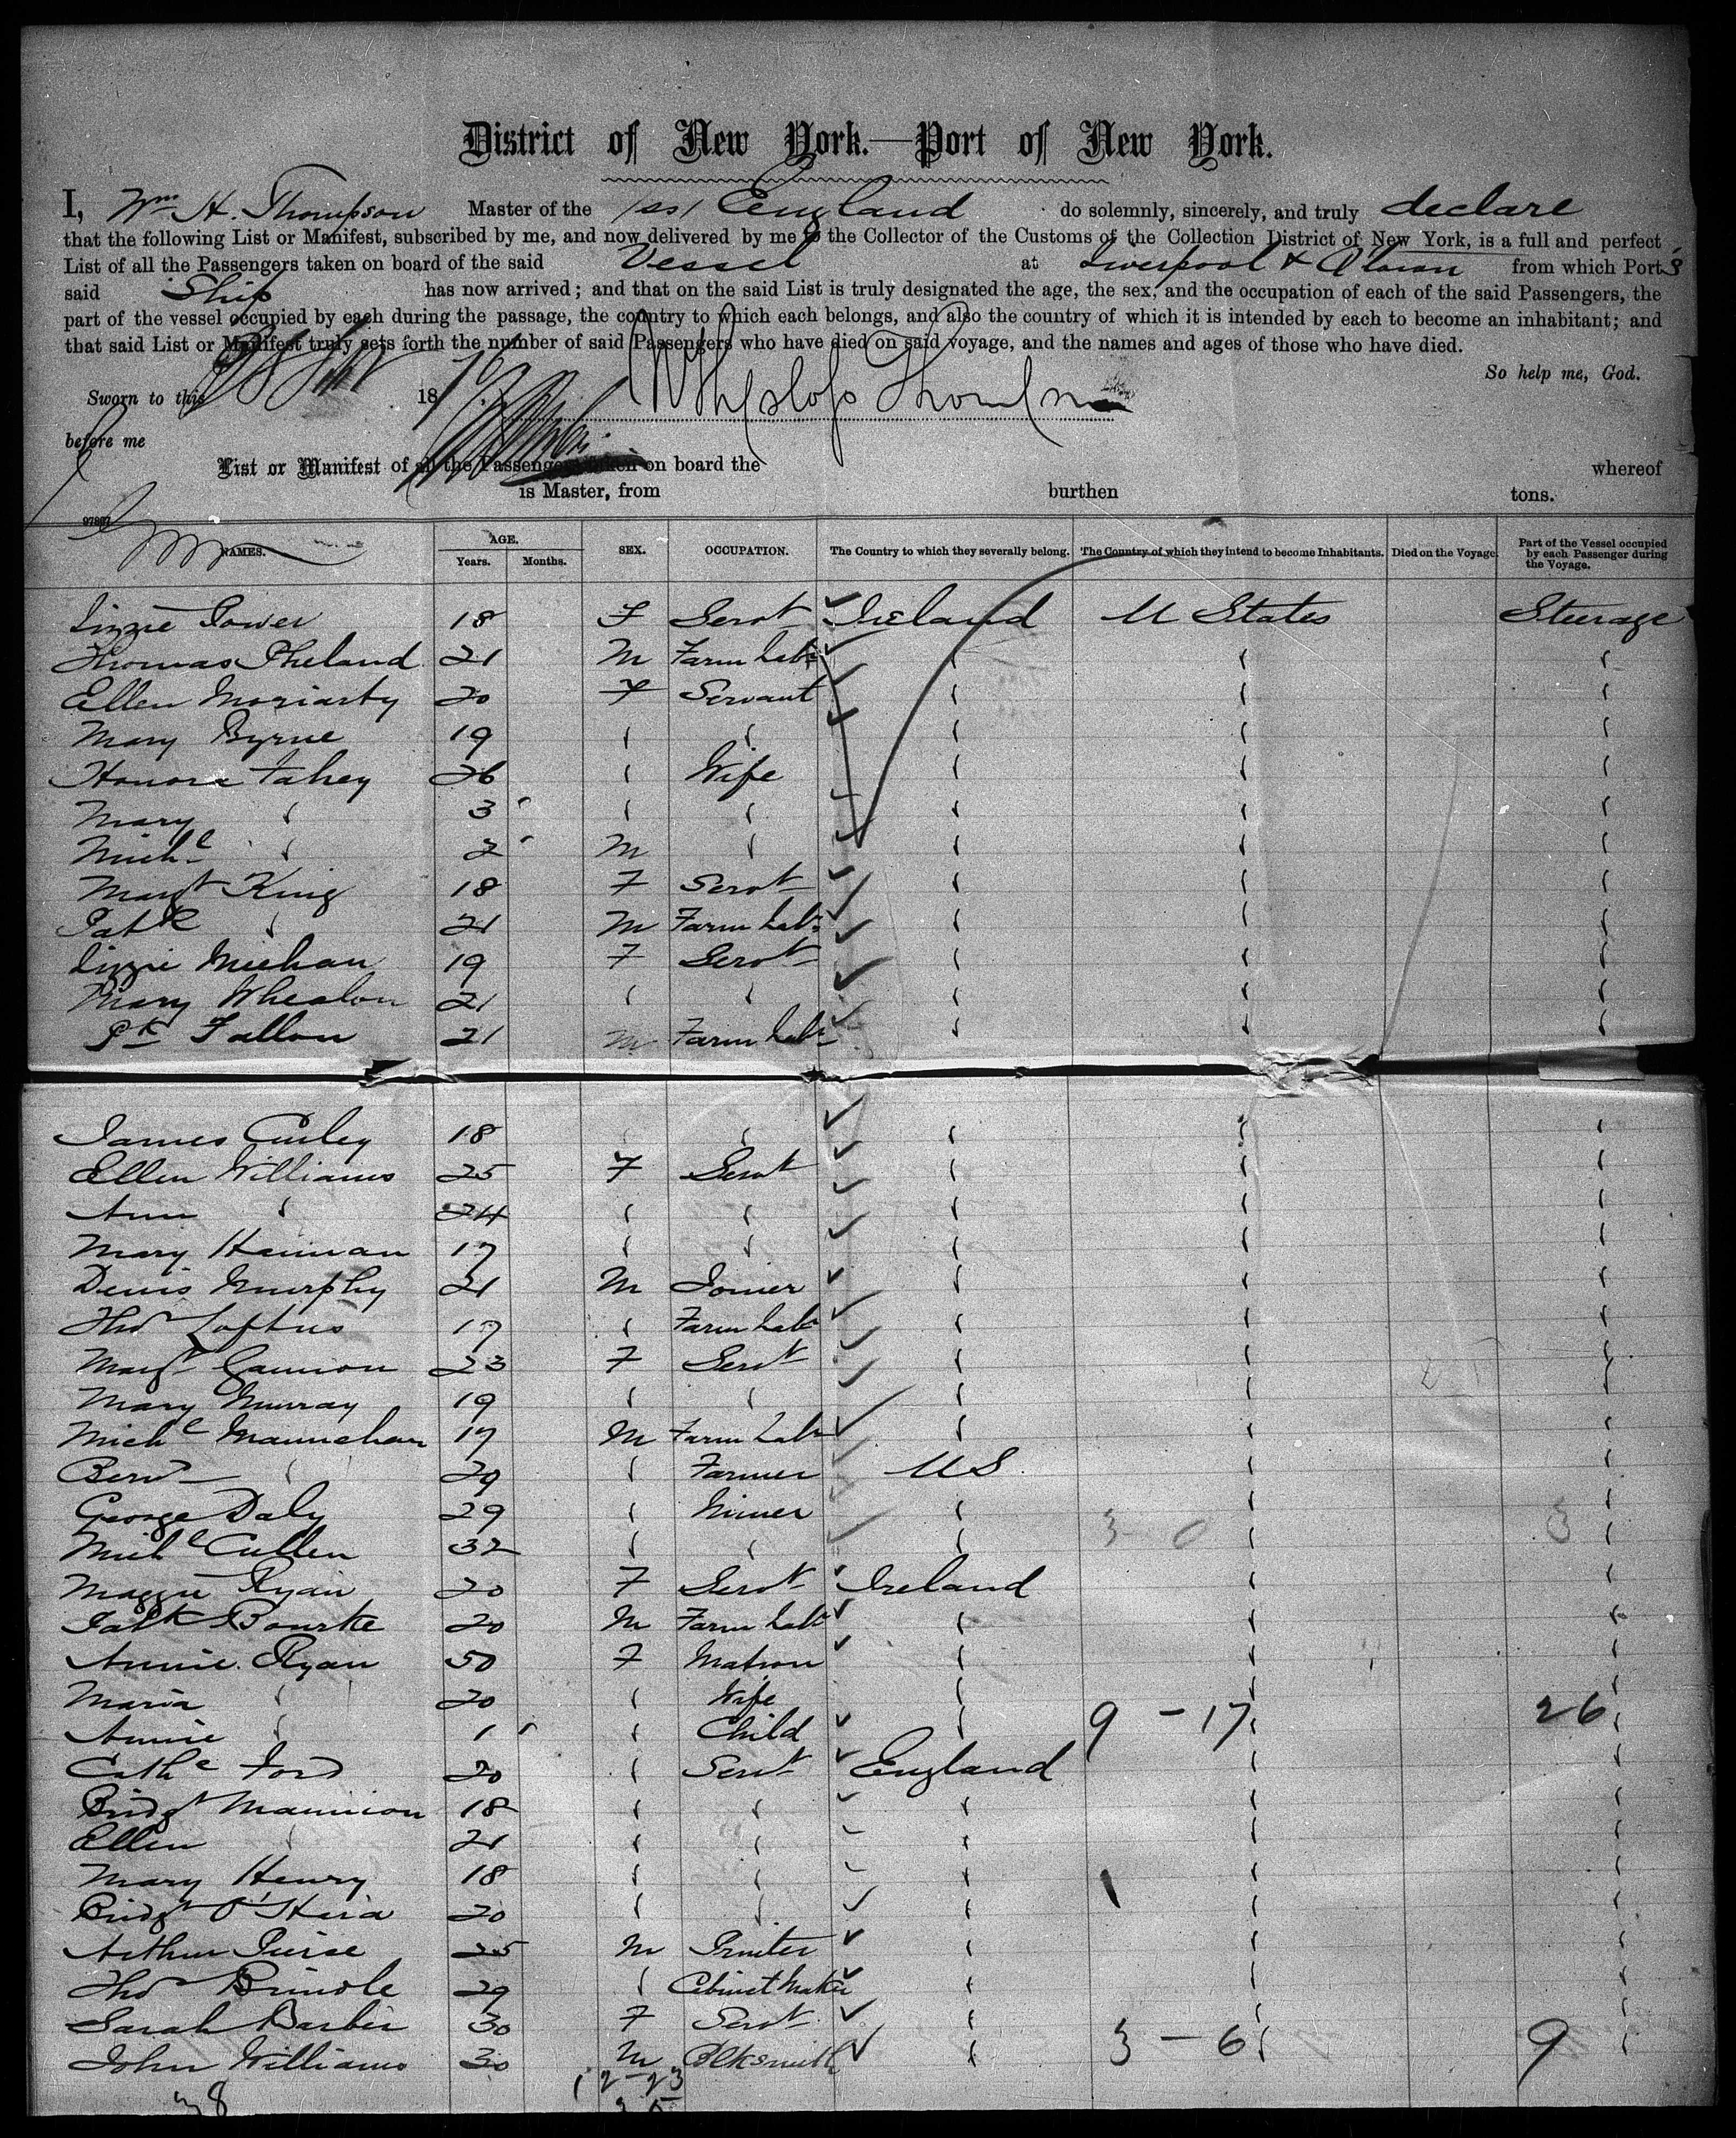 District of New York.—Port of New York.
I, Wm H. Thompson Master of the SS England do solemnly, sincerely, and truly declare
that the following List or Manifest, subscribed by me, and now delivered by me to the Collector of the Customs of the Collection District of New York, is a full and perfect
List of all the Passengers taken on board of the said Vessel at Liverpool & from which Ports
said Ship has now arrived; and that on the said List is truly designated the age, the sex, and the occupation of each of the said Passengers, the
part of the vessel occupied by each during the passage, the country to which each belongs, and also the country of which it is intended by each to become an inhabitant; and
that said List or Manifest truly sets forth the number of said Passengers who have died on said voyage, and the names and ages of those who have died.
So help me, God.
Sworn to this 18
before me
List or Manifest of all the Passengers taken on board the whereof
is Master, from burthen tons.
97897
NAMES. AGE. Years. Months. SEX. OCCUPATION. The Country to which they severally belong. The Country of which they intend to become Inhabitants. Died on the Voyage. Part of the Vessel occupied by each Passenger during the Voyage.
Lizzie Power 18 F Servt Ireland U States Steerage
Thomas Pheland 21 M Farm Labr
Ellen Moriarty 20 F Servant
Mary Byrne 19
Honora Fahey 26 Wife
Mary 3
Michl 2 M
Margt King 18 F Servt
Patk 21 M Farm Labr
Lizzie Meehan 19 F Servt
Mary Whealon 21
Pk Fallon 21 M Farm Labr
James Curley 18
Ellen Williams 25 F Servt
Ann 24
Mary Heenan 17
Denis Murphy 21 M Joiner
Thos Loftus 17 Farm Labr
Margt Gannon 23 F Servt
Mary Murray 19
Michl Mannehan 17 M Farm Labr
Bernd 29 Farmer US
George Daly 29 Miner
Michl Cullen 32 3 - 0 3
Maggie Ryan 20 F Servt Ireland
Patk Bourke 20 M Farm Labr
Annie Ryan 50 F Matron
Maria 20 Wife
Annie 1 Child 9 - 17 26
Cathe Ford 20 Servt England
Bridgt Mannion 18
Ellen 21
Mary Henry 18
Bridgt O'Hara 20
Arthur Pierse 25 M Printer
Thos Brindle 29 Cabinet Maker
Sarah Barber 30 F Servt
John Williams 30 M Blksmith 3 - 6 9
38 12-23